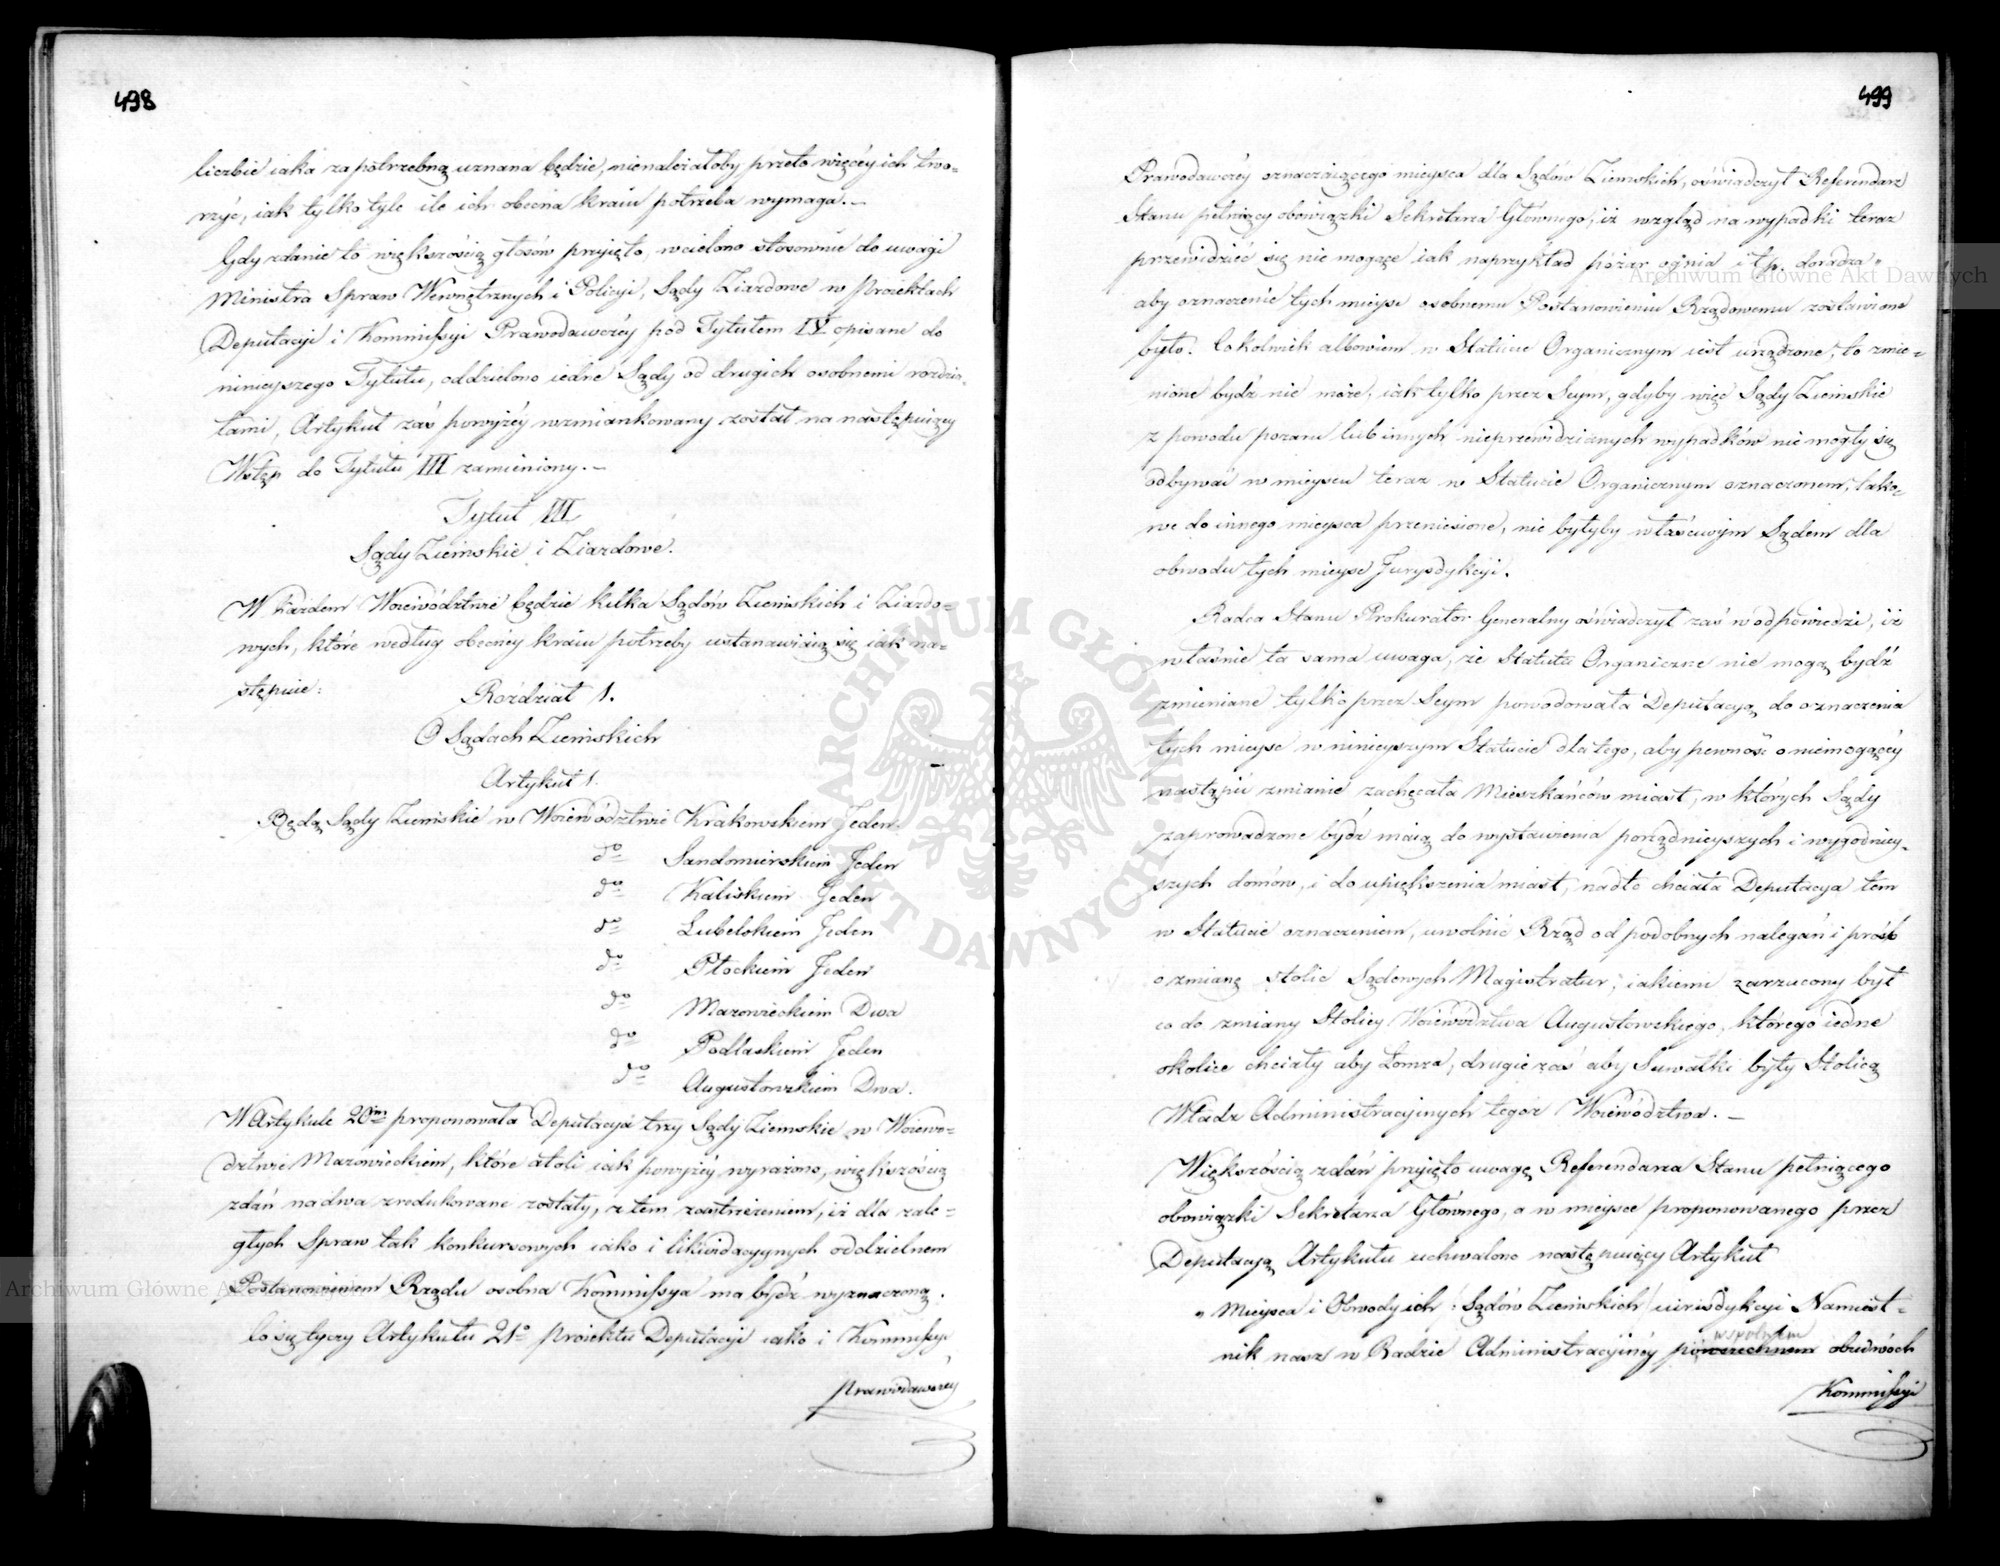 498
liczbie iaka za potrzebną uznana będzie, nienależałoby przeto więcéy ich two-
rzyć, iak tylko tyle ile ich obecna kraiu potrzeba wymaga. –
Gdy zdanie to większością głosów przyięto, wcielono stosownie do uwagi
Ministra Spraw Wewnętrznych i Policyi, Sądy Ziazdowe w Proiektach
Deputacyi i Kommissyi Prawodawczéy pod Tytułem IV opisane do
ninieyszego Tytułu, oddzielono iedne Sądy od drugich osobnemi rozdzia-
łami, Artykuł zaś powyżéy wzmiankowany został na następuiący
Wstęp do Tytułu III zamieniony. –
Tytuł III
Sądy Ziemskie i Ziazdowe.
W każdem Woiewództwie będzie kilka Sądów Ziemskich i Ziazdo-
wych, które według obecnéy kraiu potrzeby ustanawiaią się iak na-
stępuie:
Rozdział 1.
O Sądach Ziemskich
Artykuł 1.
Będą Sądy Ziemskie w Woiewództwie Krakowskiem Jeden.
do Sandomierskiem Jeden
do Kaliskiem Jeden
do Lubelskiem Jeden
do Płockiem Jeden
do Mazowieckiem Dwa
do Podlaskiem Jeden
do Augustowskiem Dwa.
W Artykule 20ym proponowała Deputacya trzy Sądy Ziemskie w Woiewo-
dztwie Mazowieckiem, które atoli iak powyżéy wyrażono, większością
zdań na dwa zredukowane zostały, z tem zastrzeżeniem, iż dla zale-
głych Spraw tak konkursowych iako i likwidacyynych oddzielnem
Postanowieniem Rządu osobna Kommissya ma bydź wyznaczoną.
Co się tyczy Artykułu 21o proiektu Deputacyi iako i Kommissyi
Prawodawczéy
499
Prawodawczéy oznaczaiącego mieysca dla Sądów Ziemskich, oświadczył Referendarz
Stanu pełniący obowiązki Sekretarza Głównego, iż wzgląd na wypadki teraz
przewidzieć się nie mogące iak naprzykład pożar ognia i t.p. doradza
aby oznaczenie tych mieysc osobnemu Postanowieniu Rządowemu zostawione
było. Cokolwiek albowiem w Statucie Organicznym iest urządzone, to zmie-
nione bydź nie może, iak tylko przez Seym, gdyby więc Sądy Ziemskie
z powodu pożaru lub innych nieprzewidzianych wypadków nie mogły się
odbywać w mieyscu teraz w Statucie Organicznym oznaczonem, tako-
we do innego mieysca przeniesione, nie byłyby właściwym Sądem dla
obwodu tych mieysc Jurysdykcyi.
Radca Stanu Prokurator Generalny oświadczył zaś w odpowiedzi, iż
właśnie ta sama uwaga, że Statuta Organiczne nie mogą bydź
zmieniane tylko przez Seym powodowała Deputacyą do oznaczenia
tych mieysc w ninieyszym Statucie dla tego, aby pewność o niemogącéy
nastąpić zmianie zachęcała Mieszkańców miast, w których Sądy
zaprowadzone bydź maią do wystawienia porządnieyszych i wygodniey-
szych domów, i do upiększenia miast, nadto chciała Deputacya tem
w Statucie oznaczeniem, uwolnić Rząd od podobnych nalegań i próśb
o zmianę stolic Sądowych Magistratur, iakiemi zarzucony był
co do zmiany Stolicy Woiewództwa Augustowskiego, którego iedne
okolice chciały aby Łomża, drugie zaś aby Suwałki były Stolicą
Władz Administracyinych tegoż Woiewództwa. –
Większością zdań przyięto uwagę Referendarza Stanu pełniącego
obowiązki Sekretarza Głównego, a w mieysce proponowanego przez
Deputacyą Artykułu uchwalono następuiący Artykuł
„ Mieysca i Obwody ich /: Sądów Ziemskich / iurisdykcyi Namiest-
wspolnem
nik nasz w Radzie Administracyinéy powszechnem obudwóch
Kommissyi
ARCHIWUM GŁÓWNE AKT DAWNYCH
Archiwum Główne Akt Dawnych
Archiwum Główne Akt Dawnych
Archiwum Główne Akt Dawnych